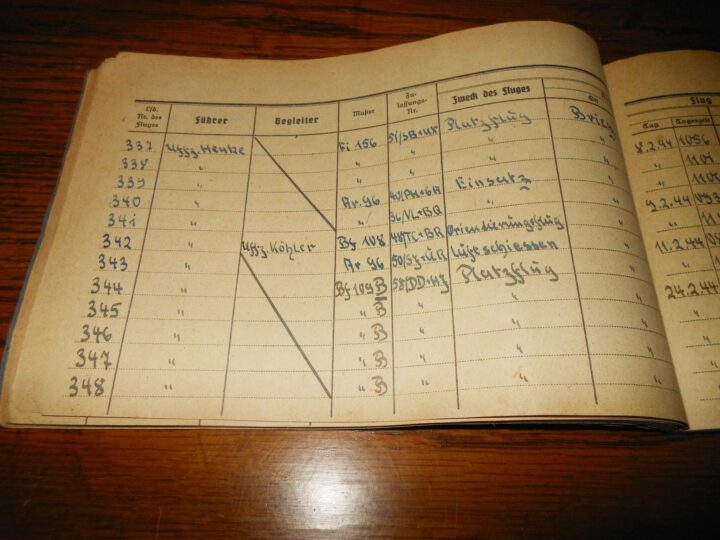 Lfd. Nr. des Fluges Führer Begleiter Muster Zu- lassungs- Nr. Zweck des Fluges Ort Flug
Tag Tageszeit
337 Uffz. Henke Fi 156 Platzflug Brieg 8.2.44 1056
338 " " " " " " 1101
339 " " " " " "
340 " Ar. 96 40/PH+GA Einsatz " 9.2.44
341 " " 36/VL+BQ " " "
342 " Uffz. Köhler Bf 108 48/TC+BR Orientierungsflug " 11.2.44
343 " Ar 96 50/SJ+UR Luftschiessen " "
344 " Bf 109 B 58/DD+HJ Platzflug " 24.2.44
345 " " B " " " "
346 " " B " " " "
347 " " B " " "
348 " " B " " "